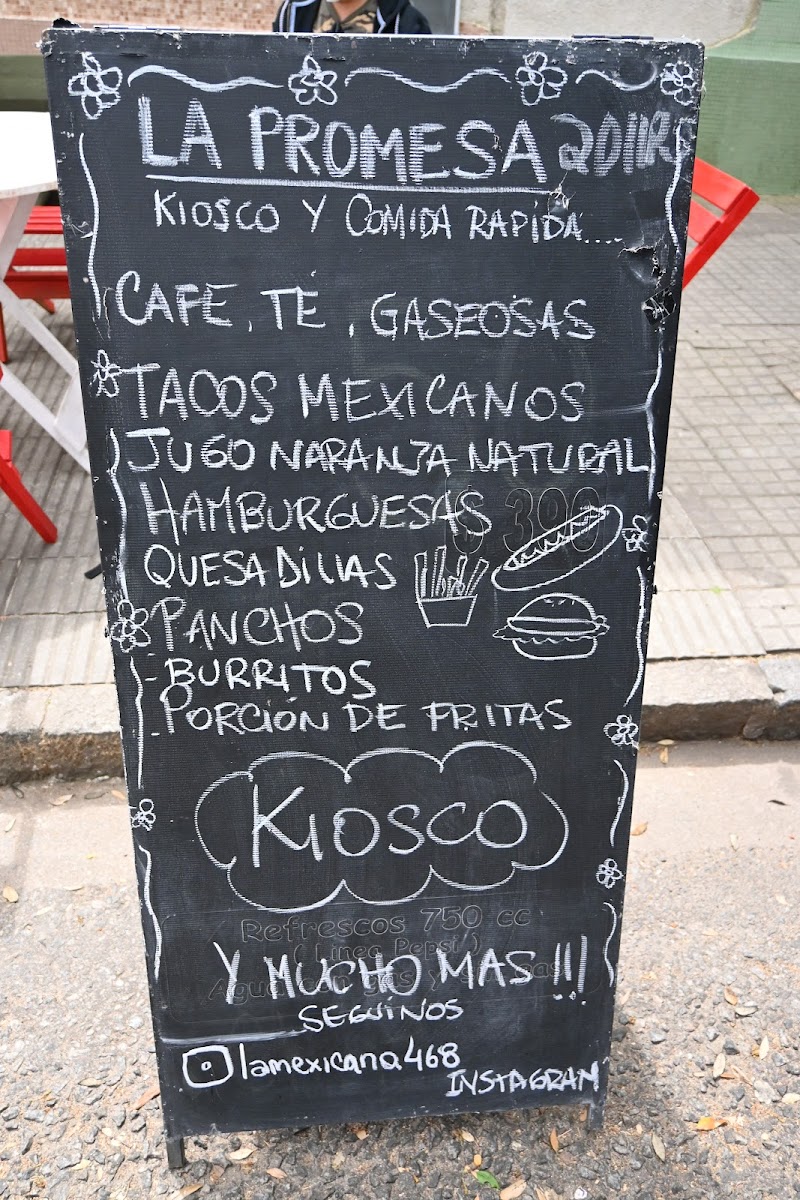 LA PROMESA
KIOSCO Y COMIDA RAPIDA....
CAFE, TÉ, GASEOSAS
TACOS MEXICANOS
JUGO NARANJA NATURAL
HAMBURGUESAS
$ 390
QUESADILLAS
PANCHOS
- BURRITOS
- PORCIÓN DE FRITAS
KIOSCO
Refrescos 750 cc
(Linea Pepsi)
Y MUCHO MAS !!!
SEGUINOS
lamexicana468
INSTAGRAM